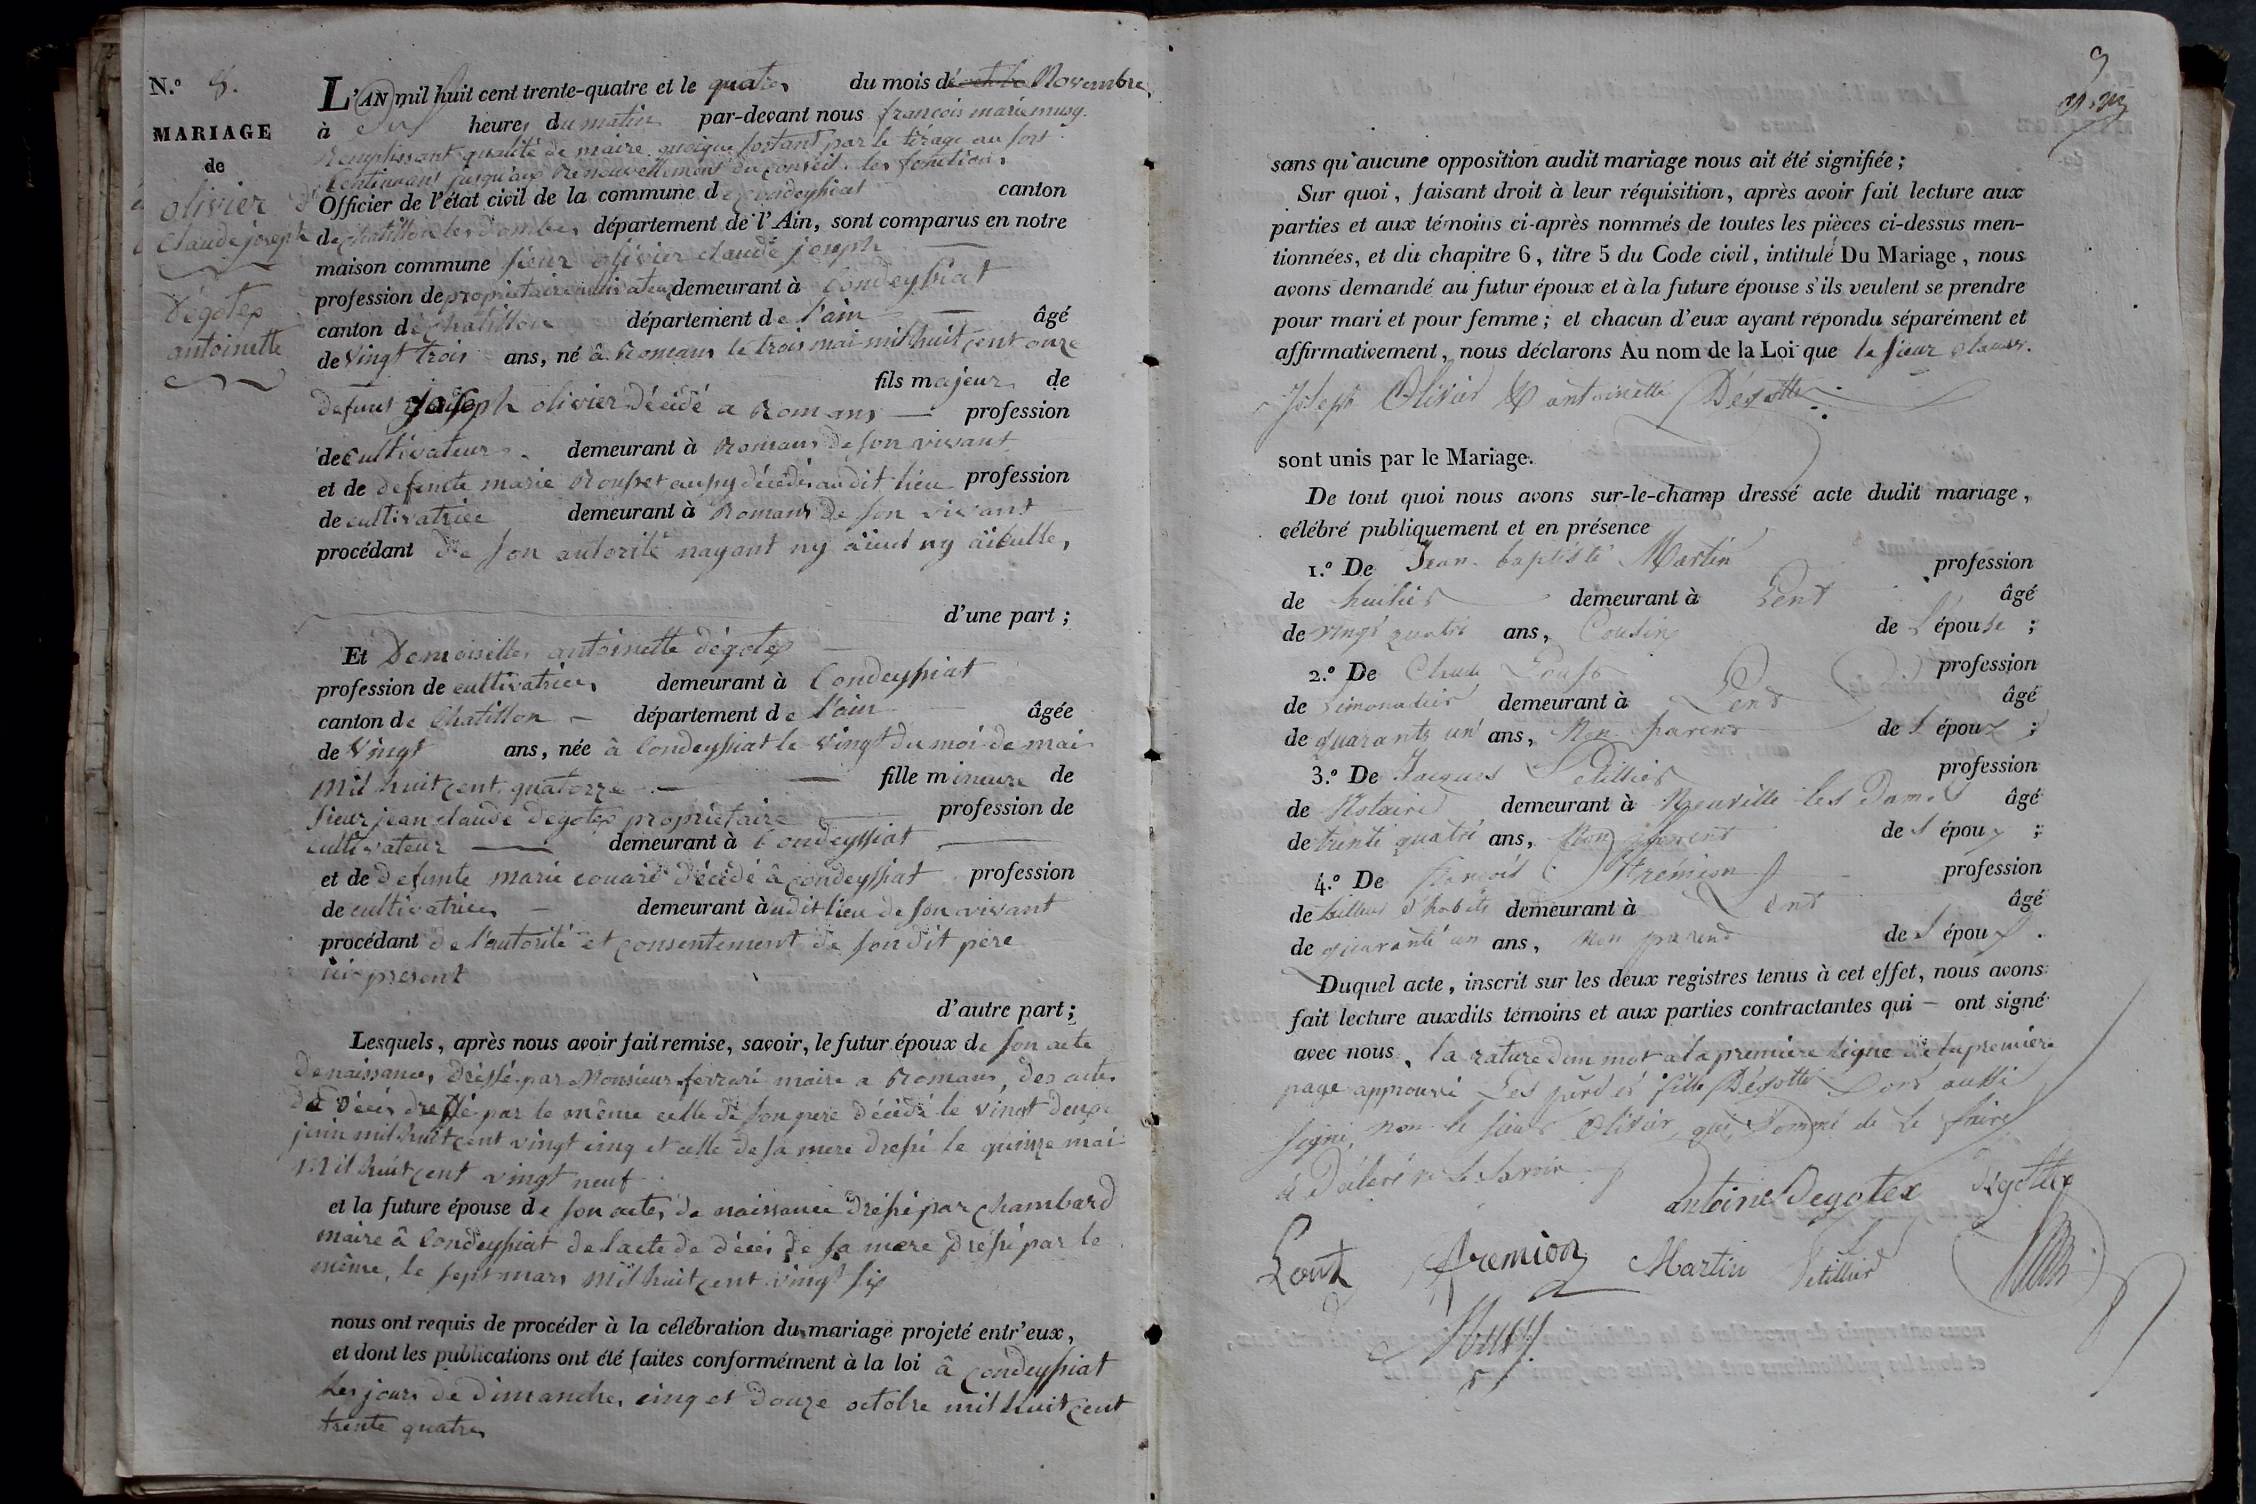 N.º 8.
MARIAGE
de
olivier
Claude joseph
Dégotex
antoinette
L'AN mil huit cent trente-quatre et le quatre du mois de octobre Novembre
à dix heures du matin par-devant nous françois marie musy
Remplissant qualité de maire quoique sortant par le tirage au sort
Continuant jusqu'aux Renouvellement du conseil les fonctions
Officier de l'état civil de la commune de condeyssiat canton
de chatillon les dombes département de l'Ain, sont comparus en notre
maison commune sieur olivier claude joseph
profession de proprietaire cultivateur demeurant à Condeyssiat
canton de chatillon département de l'ain âgé
de Vingt trois ans, né à Romans le trois mai mil huit cent onze
fils majeur de
defunt joseph olivier décédé a Romans profession
de Cultivateur demeurant à Romans de son vivant
et de defunte marie Rousset aussy décédé audit lieu profession
de cultivatrice demeurant à Romans de son vivant
procédant de son autorité nayant ny aieul ny aieulle,
d'une part ;
Et Demoiselle antoinette dégotex
profession de cultivatrice demeurant à Condeyssiat
canton de Chatillon département de l'ain âgée
de Vingt ans, née à Condeyssiat le vingt du moi de mai
mil huit cent quatorze fille mineure de
sieur jean claude degotex proprietaire profession de
cultivateur demeurant à Condeyssiat
et de defunte marie couard décédé à condeyssiat profession
de cultivatrice demeurant audit lieu de son vivant
procédant de l'autorité et consentement de son dit père
ici present
d'autre part ;
Lesquels, après nous avoir fait remise, savoir, le futur époux de son acte
de naissance, dressé par Monsieur ferrari maire a Romans, des actes
de décés dressé par le même celle de son pere décédé le vingt deux
juin mil huit cent vingt cinq et celle de sa mere dressé le quinze mai
mil huit cent vingt neuf
et la future épouse de son acte de naissance dréssé par Chambard
maire à Condeyssiat de lacte de décés de sa mere dréssé par le
même, le sept mars mil huit cent vingt six
nous ont requis de procéder à la célébration du mariage projeté entr'eux,
et dont les publications ont été faites conformément à la loi à Condeyssiat
les jours de dimanche, cinq et douze octobre mil huit cent
trente quatre
9
sans qu'aucune opposition audit mariage nous ait été signifiée ;
Sur quoi, faisant droit à leur réquisition, après avoir fait lecture aux
parties et aux témoins ci-après nommés de toutes les pièces ci-dessus men-
tionnées, et du chapitre 6, titre 5 du Code civil, intitulé Du Mariage, nous
avons demandé au futur époux et à la future épouse s'ils veulent se prendre
pour mari et pour femme ; et chacun d'eux ayant répondu séparément et
affirmativement, nous déclarons Au nom de la Loi que le sieur Claude
Joseph Olivier & antoinette Dégottex
sont unis par le Mariage.
De tout quoi nous avons sur-le-champ dressé acte dudit mariage,
célébré publiquement et en présence
1.º De Jean-baptiste Martin profession
de huilier demeurant à Lent âgé
de vingt quatre ans, Cousin de l'épouse ;
2.º De Claude profession
de Limonadier demeurant à Lent âgé
de quarante un ans, Non parent de l'époux ;
3.º De Jacques Petillier profession
de Notaire demeurant à Neuville les Dames âgé
de trente quatre ans, Non parent de l'époux ;
4.º De François Fremion profession
de tailleur d'habits demeurant à Lent âgé
de quarante un ans, Non parent de l'époux.
Duquel acte, inscrit sur les deux registres tenus à cet effet, nous avons
fait lecture auxdits témoins et aux parties contractantes qui ont signé
avec nous, la rature dun mot a la premiere ligne de la premiere
page approuvé Les père et fille Dégottex ont aussi
signé, non le sieur Olivier, qui, sommé de le faire,
a Déclaré ne le savoir
antoine Degotex Dégottex
Fremion Martin Petillier
Musy